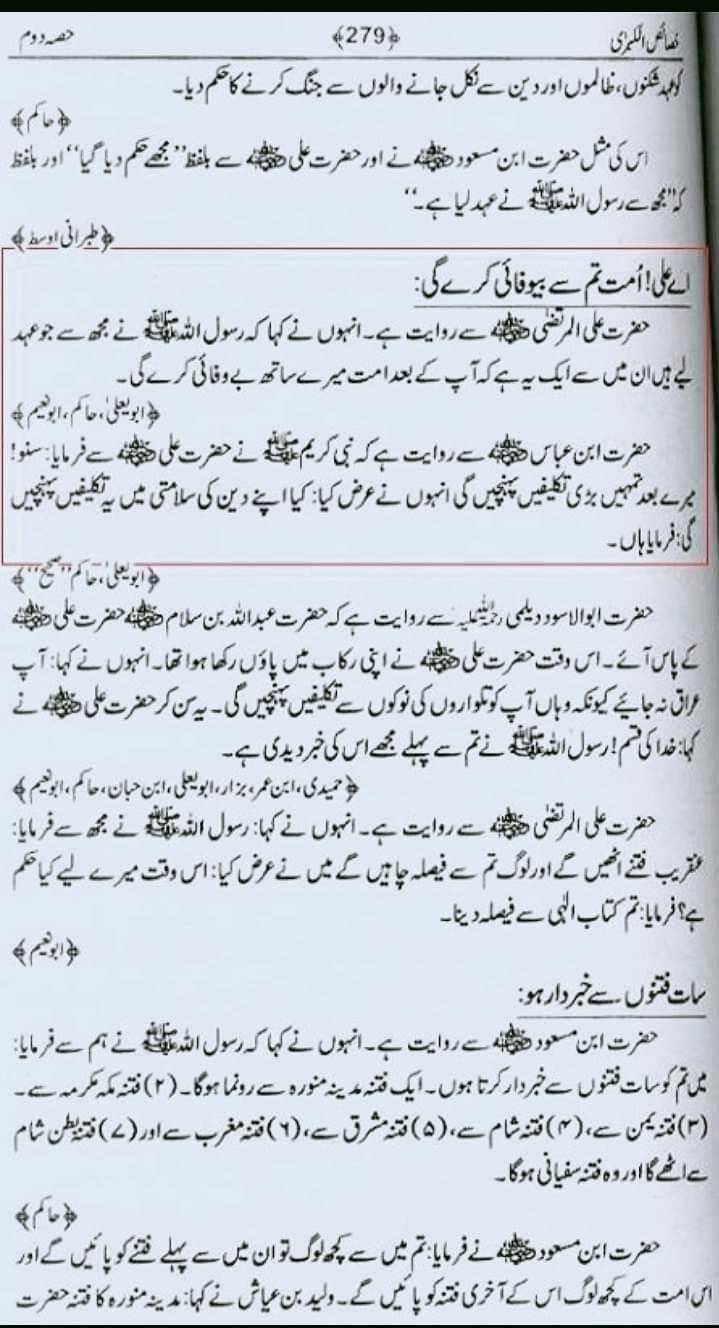 خصائص الکبرٰی ﴿279﴾ حصہ دوم
کو عہد شکنوں، ظالموں اور دین سے نکل جانے والوں سے جنگ کرنے کا حکم دیا۔
﴿حاکم﴾
اس کی مثل حضرت ابن مسعود رضی اللہ عنہ نے اور حضرت علی رضی اللہ عنہ سے بلفظ ’’مجھے حکم دیا گیا‘‘ اور بلفظ
کہ ’’مجھ سے رسول اللہ ﷺ نے عہد لیا ہے۔‘‘
﴿طبرانی اوسط﴾
اے علی! اُمت تم سے بیوفائی کرے گی:
حضرت علی المرتضٰی رضی اللہ عنہ سے روایت ہے۔ انہوں نے کہا کہ رسول اللہ ﷺ نے مجھ سے جو عہد
لیے ہیں ان میں سے ایک یہ ہے کہ آپ کے بعد امت میرے ساتھ بے وفائی کرے گی۔
﴿ابویعلیٰ، حاکم، ابونعیم﴾
حضرت ابن عباس رضی اللہ عنہ سے روایت ہے کہ نبی کریم ﷺ نے حضرت علی رضی اللہ عنہ سے فرمایا: سنو!
میرے بعد تمہیں بڑی تکلیفیں پہنچیں گی انہوں نے عرض کیا: کیا اپنے دین کی سلامتی میں یہ تکلیفیں پہنچیں
گی: فرمایا ہاں۔
﴿ابویعلیٰ، حاکم ’’صحیح‘‘﴾
حضرت ابوالاسود دیلمی رحمۃ اللہ علیہ سے روایت ہے کہ حضرت عبداللہ بن سلام رضی اللہ عنہ حضرت علی رضی اللہ عنہ
کے پاس آئے۔ اس وقت حضرت علی رضی اللہ عنہ نے اپنی رکاب میں پاؤں رکھا ہوا تھا۔ انہوں نے کہا: آپ
عراق نہ جائیے کیونکہ وہاں آپ کو تلواروں کی نوکوں سے تکلیفیں پہنچیں گی۔ یہ سن کر حضرت علی رضی اللہ عنہ نے
کہا: خدا کی قسم! رسول اللہ ﷺ نے تم سے پہلے مجھے اس کی خبر دیدی ہے۔
﴿حمیدی، ابن عمر، بزار، ابویعلی، ابن حبان، حاکم، ابونعیم﴾
حضرت علی المرتضٰی رضی اللہ عنہ سے روایت ہے۔ انہوں نے کہا: رسول اللہ ﷺ نے مجھ سے فرمایا:
عنقریب فتنے اٹھیں گے اور لوگ تم سے فیصلہ چاہیں گے میں نے عرض کیا: اس وقت میرے لیے کیا حکم
ہے؟ فرمایا: تم کتاب الٰہی سے فیصلہ دینا۔
﴿ابونعیم﴾
سات فتنوں سے خبردار ہو:
حضرت ابن مسعود رضی اللہ عنہ سے روایت ہے۔ انہوں نے کہا کہ رسول اللہ ﷺ نے ہم سے فرمایا:
میں تم کو سات فتنوں سے خبردار کرتا ہوں۔ ایک فتنہ مدینہ منورہ سے رونما ہوگا۔ (۲) فتنہ مکہ مکرمہ سے۔
(۳) فتنہ یمن سے، (۴) فتنہ شام سے، (۵) فتنہ مشرق سے، (۶) فتنہ مغرب سے اور (۷) فتنہ بطن شام
سے اٹھے گا اور وہ فتنہ سفیانی ہوگا۔
﴿حاکم﴾
حضرت ابن مسعود رضی اللہ عنہ نے فرمایا: تم میں سے کچھ لوگ تو ان میں سے پہلے فتنے کو پائیں گے اور
اس امت کے کچھ لوگ اس کے آخری فتنہ کو پائیں گے۔ ولید بن عیاش نے کہا: مدینہ منورہ کا فتنہ حضرت